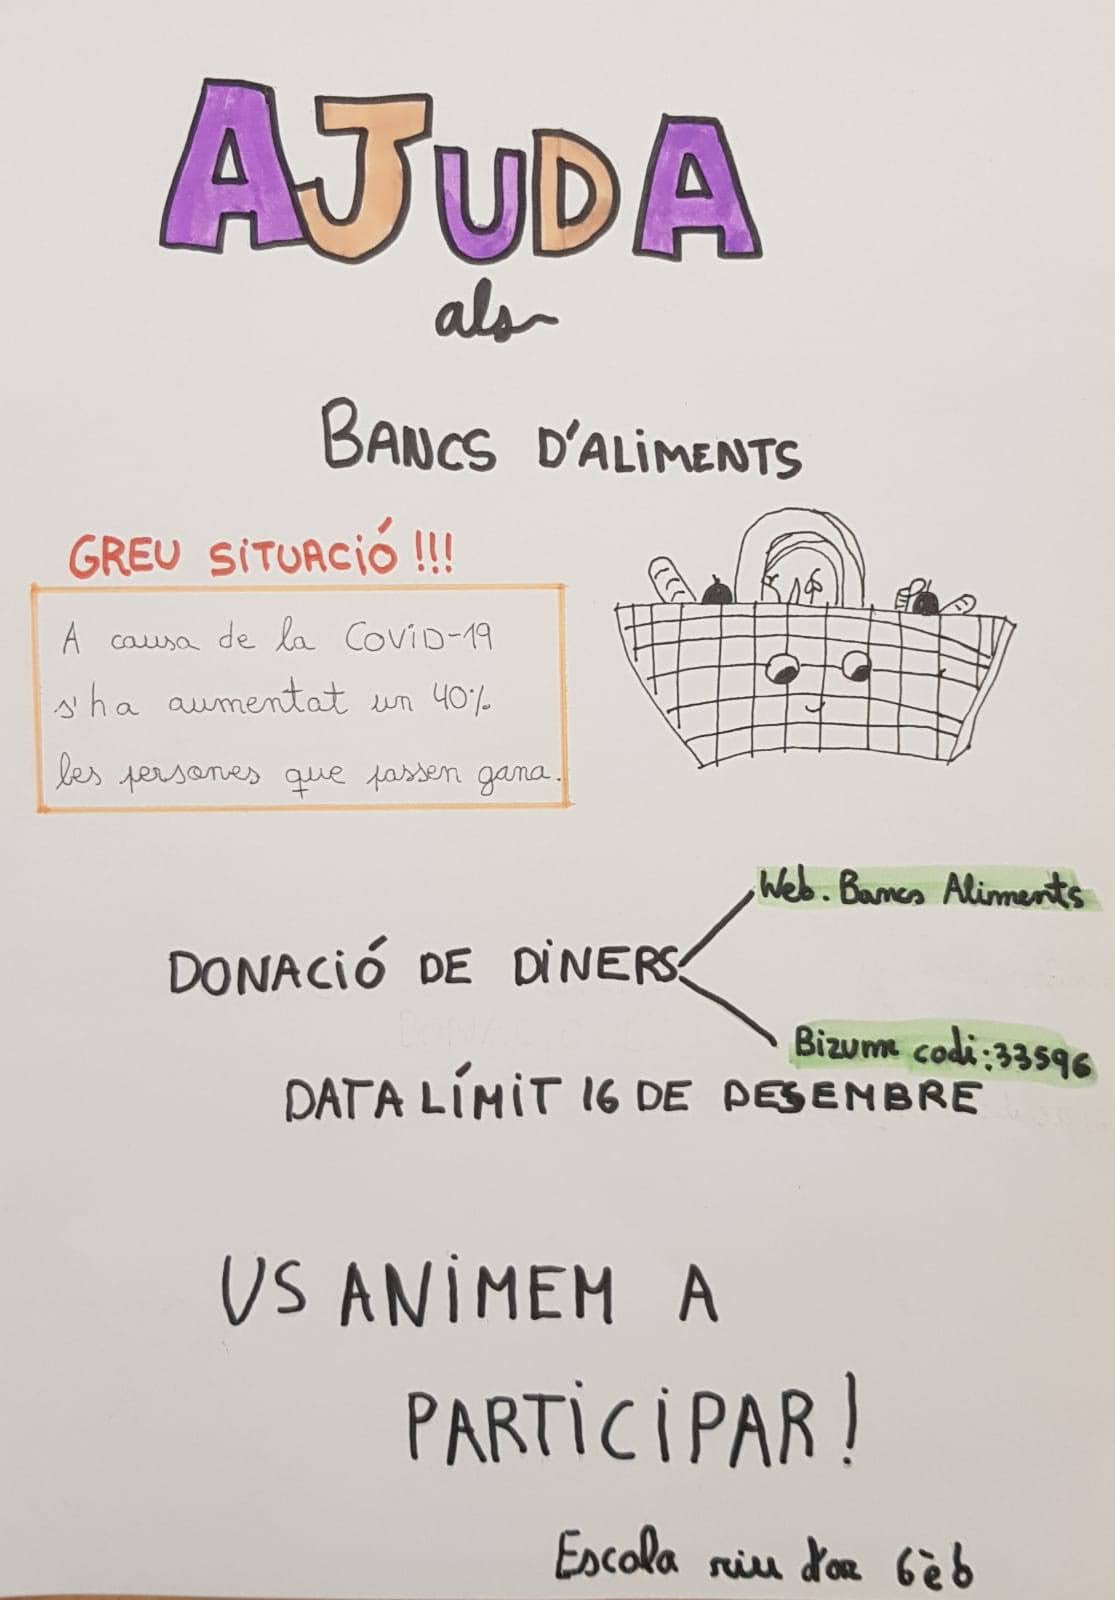 AJUDA
als
BANCS D'ALIMENTS
GREU SITUACIÓ!!!
A causa de la COVID-19
s'ha aumentat un 40%
les persones que passen gana.
Web. Bancs Aliments
DONACIÓ DE DINERS
Bizum codi:33596
DATA LÍMIT 16 DE DESEMBRE
US ANIMEM A
PARTICIPAR!
Escola riu d'or 6èb